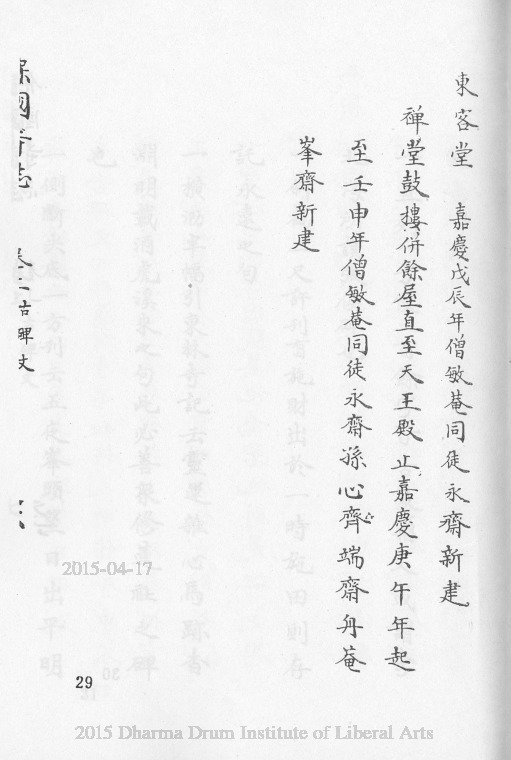 東客堂　嘉慶戊辰年僧敏菴同徒永齋新建
禅堂鼓樓併餘屋直至天王殿止嘉慶庚午年起
至壬申年僧敏菴同徒永齋孫心齊端齋舟菴
峯齋新建
保國寺志　卷二古碑文
2015-04-17
29
2015 Dharma Drum Institute of Liberal Arts